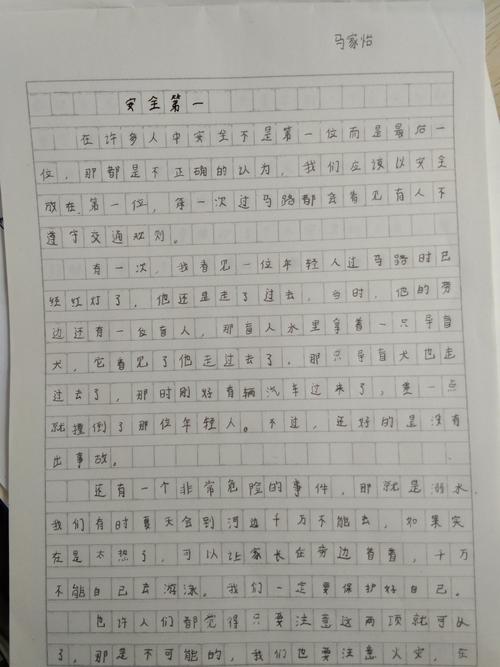 马家怡
安全第一
在许多人中安全不是第一位而是最后一
位，那都是不正确的认为，我们应该以安全
放在第一位，第一次过马路都会看见有人不
遵守交通规则。
有一次，我看见一位年轻人过马路时已
经红灯了，他还是走了过去，当时，他的旁
边还有一位盲人，那盲人水里拿着一只导盲
犬，它看见了他走过去了，那只导盲犬也走
过去了，那时刚好有辆汽车过来了，差一点
就撞倒了那位年轻人。不过，还好的是没有
出事故。
还有一个非常危险的事件，那就是溺水
我们有时夏天会到河边千万不能去，如果实
在是太想了，可以让家长在旁边看着，千万
不能自己去游泳。我们一定要保护好自己。
也许人们都觉得只要注意这两项就可以
了，那是不可能的，我们也要注意火灾，在